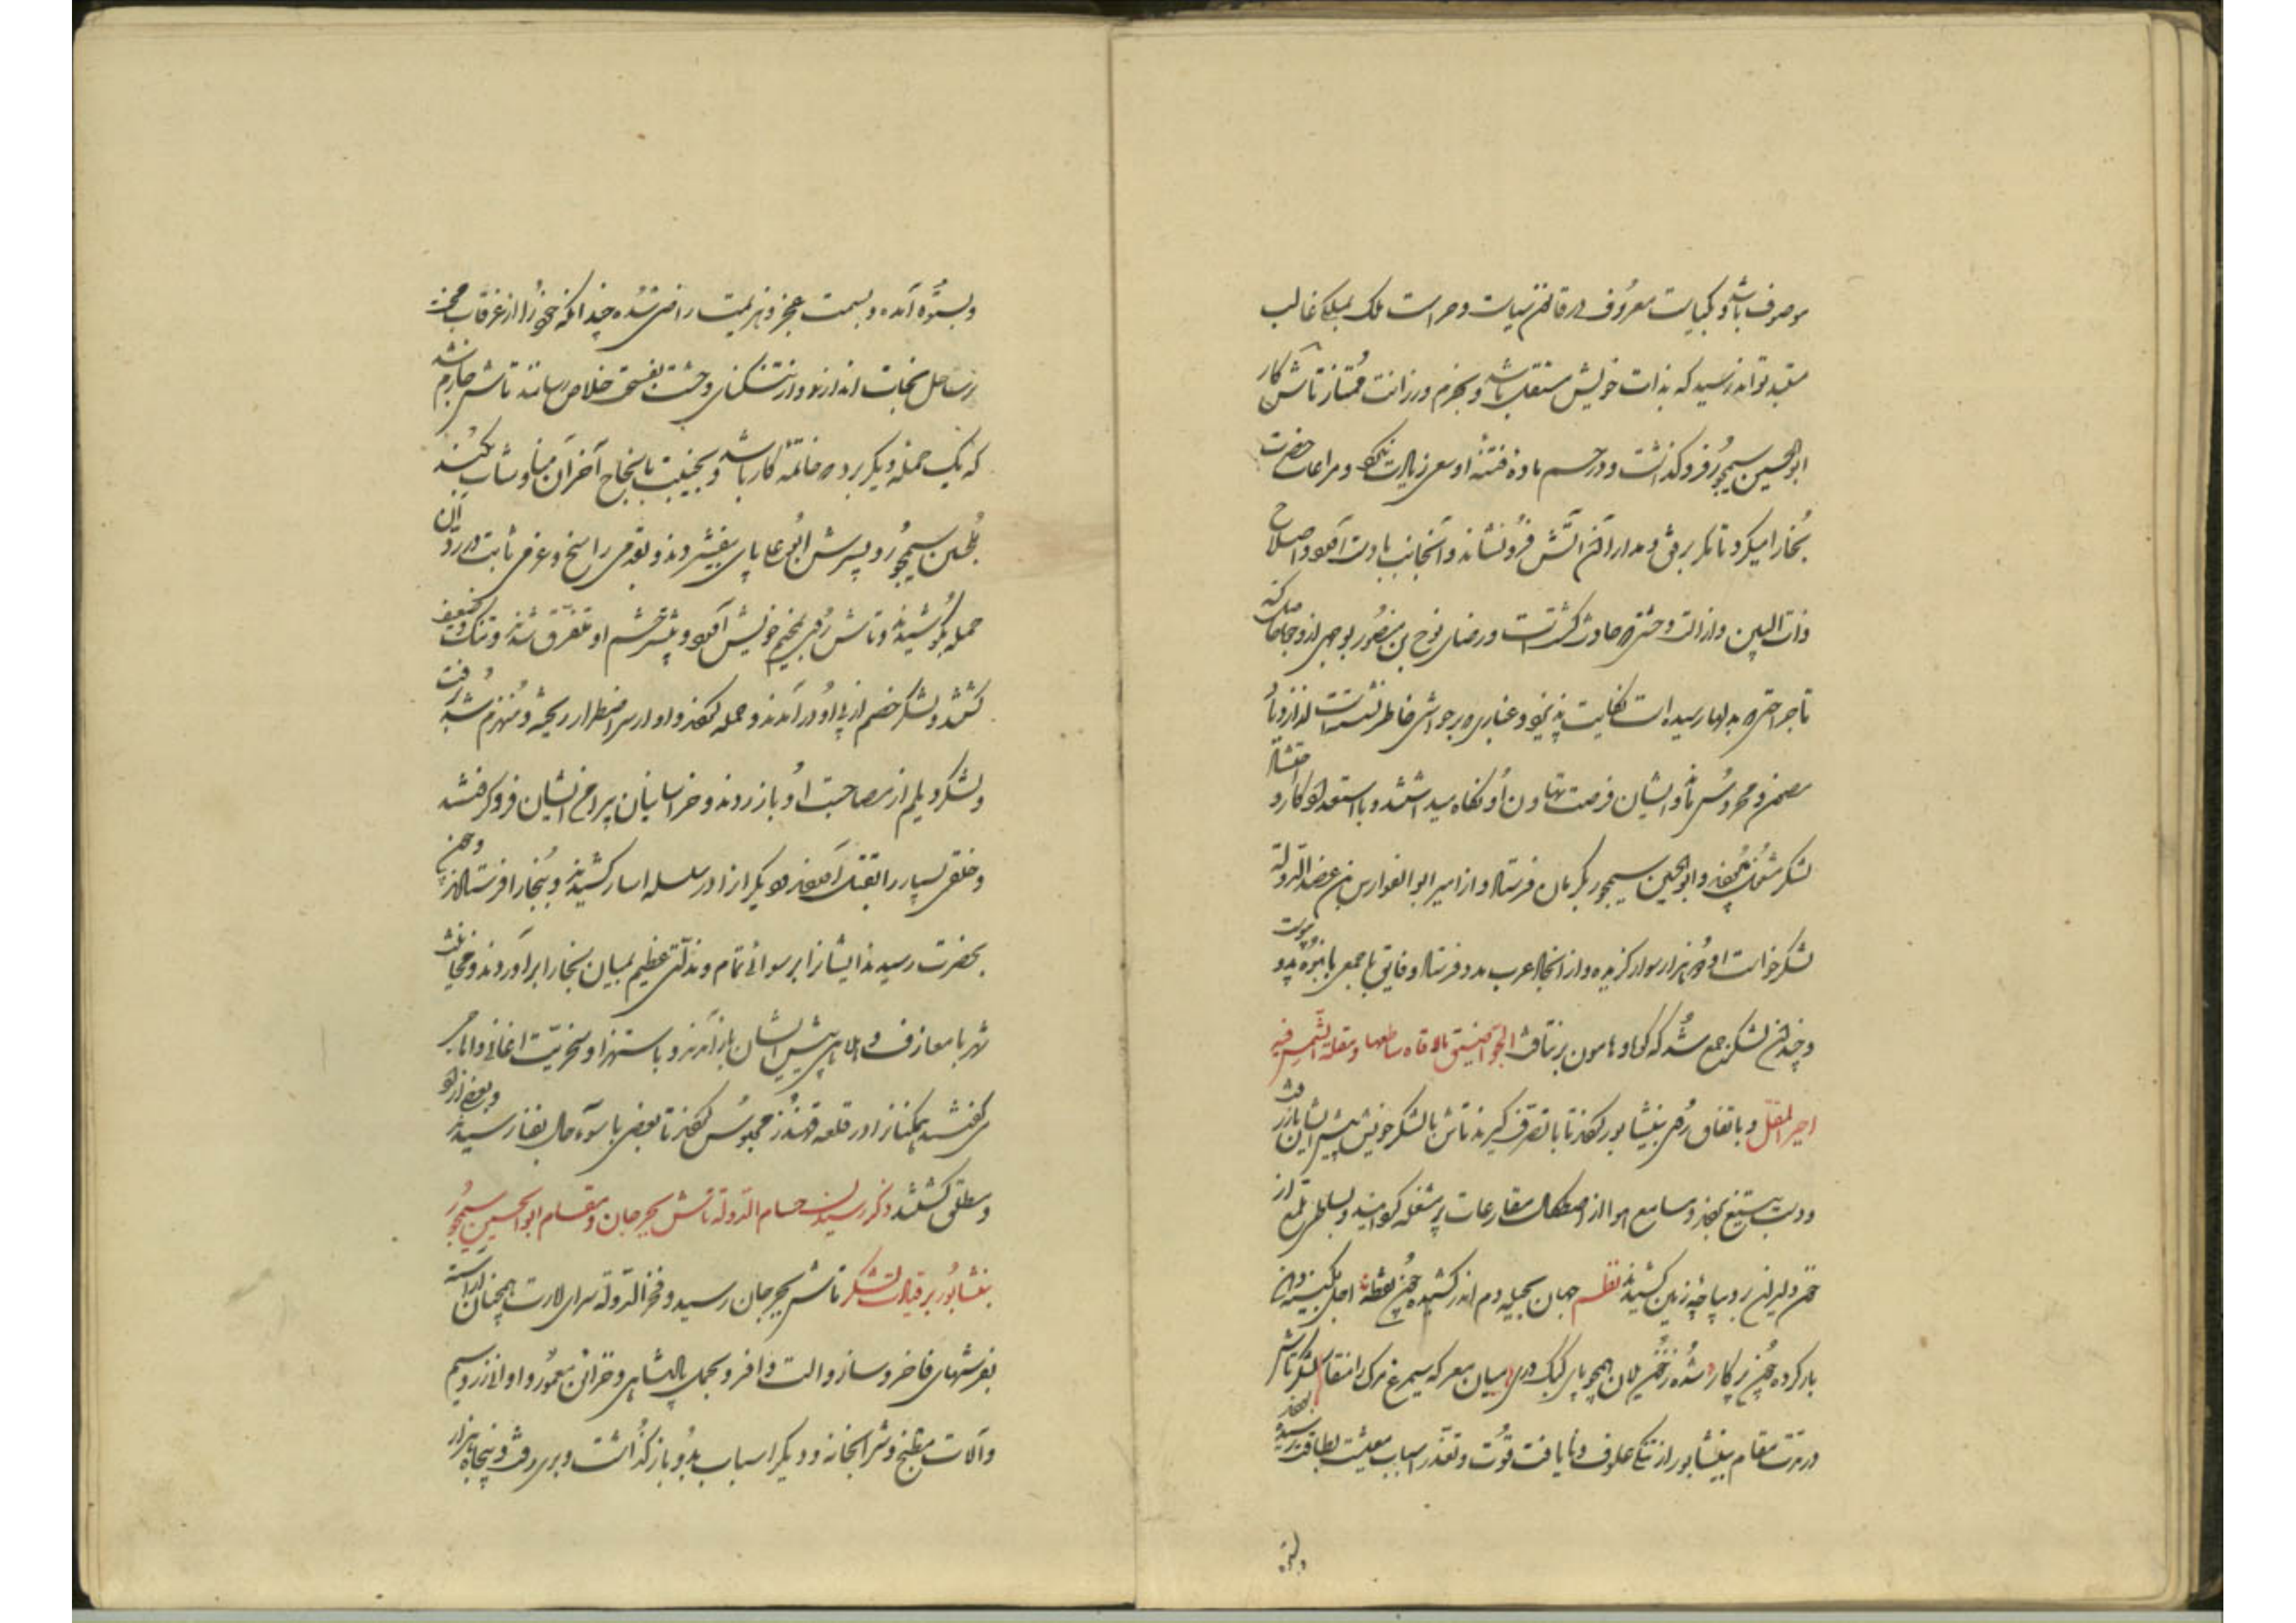 موصوف باشد و بکیاست معروف در قانون سیاست و حراست ملک بملکی غالب
مستبد تواند رسید که بذات خویش مستقل باشد و بحزم و رزانت ممتاز تاش کار
ابوالحسین سیمجور فروگذاشت و در حسم ماده فتنه او سعی زیادت ننمود و مراعات حضرت
بخارا میکرد تا مگر برفق و مدارا آن آتش فرو نشاند و آنجانب بادست آورد و اصلاح
ذات البین و ازالت وحشتی که حادث گشته است و رضای نوح بن منصور بوجهی از وجوه حاصل کند
تا جراحتی که بدلها رسیده است کفایت پذیرد و غباری که بر حواشی خاطر نشسته است
ایشان فرصت تهاون او نگاه میداشتند و باستعداد کار و احتشاد
لشکر مشغول بودند و ابوالحسین سیمجور بکرمان فرستاد و از امیر ابوالفوارس بن عضدالدوله
لشکر خواست او دو هزار سوار گزیده و از انجاد عرب بمدد فرستاد و فایق با جمعی بانبوه بدو پیوست
و چندان لشکر جمع شد که کوه و هامون بر نتافت الجو اضیق ما لاقاه ساطعها و مقلة الشمس فیه
احیر المقل و باتفاق روی بنیشابور نهادند تا با تصرف گیرند تاش با لشکر خویش پیش ایشان باز رفت
و دست بتیغ بردند و مسامع هوا از اصطکاک مقارعات پر مشغله گردانیدند و بساط زمین از
خون دلیران دیباچه رنگین کشیدند نظم جهان بحیله دم اندر کشیده چون نقطه اجل بکینه دهان
باز کرده چون پرگار شده ز خون یلان همچو پای کبک دری میان معرکه سیمرغ مرگ را منقار لشکر تاش
در مدت مقام بنیشابور از تنگی علوفه و نایافت قوت و تعذر اسباب معیشت بطاقت رسیده بودند
و بستوه آمده و بسمت عجز و هزیمت راضی شده چندانکه خود را از غرقاب محنت
بر ساحل نجات اندازند و از تنگنای وحشت بفسحت خلاص رسانند تاش جازم شد
که یک حمله دیگر برد که خاتمه کار باشد و بخیبت یا نجاح آخر آن
ابوالحسین سیمجور و پسرش ابوعلی پای بیفشردند و بقدمی راسخ و عزمی ثابت در رد آن
حمله بکوشیدند و تاش روی بخیم خویش آورد و بیشتر حشم او متفرق شدند و تنک و ضعیف
گشتند و لشکر خصم از پی او در آمدند و حمله کردند و او از سر اضطرار و منهزم شد برفت
و لشکر دیلم از مصاحبت او باز زدند و خراسانیان پیرامن ایشان فرو گرفتند
و خلقی بسیار را بقتل آوردند و دیگران را در سلسله اسار کشیدند و ببخارا فرستادند و چون
بحضرت رسیدند ایشانرا برسوائی تمام و مذلتی عظیم بمیان بخارا برآوردند و مخانیث
شهر با معازف و ملاهی پیش ایشان باز آمدند و باستهزا و سخریت اغانی و
می‌گفتند همگنانرا در قلعه قهندز محبوس کردند تا بعضی با سوء حال بفنا رسیدند و بعضی آزاد
و مطلق گشتند ذکر رسیدن حسام الدوله تاش بجرجان و مقام ابوالحسین سیمجور
بنشابور بر قیادت لشکر تاش بجرجان رسید و فخر الدوله سرای امارت همچنان آراسته
بفرشهای فاخر و ساز و آلت وافر و تجمل پادشاهی و خزائن معمور و اوانی زر و سیم
و آلات مطبخ و شرابخانه و دیگر اسباب بدو باز گذاشت و بری رفت و پنجاه هزار